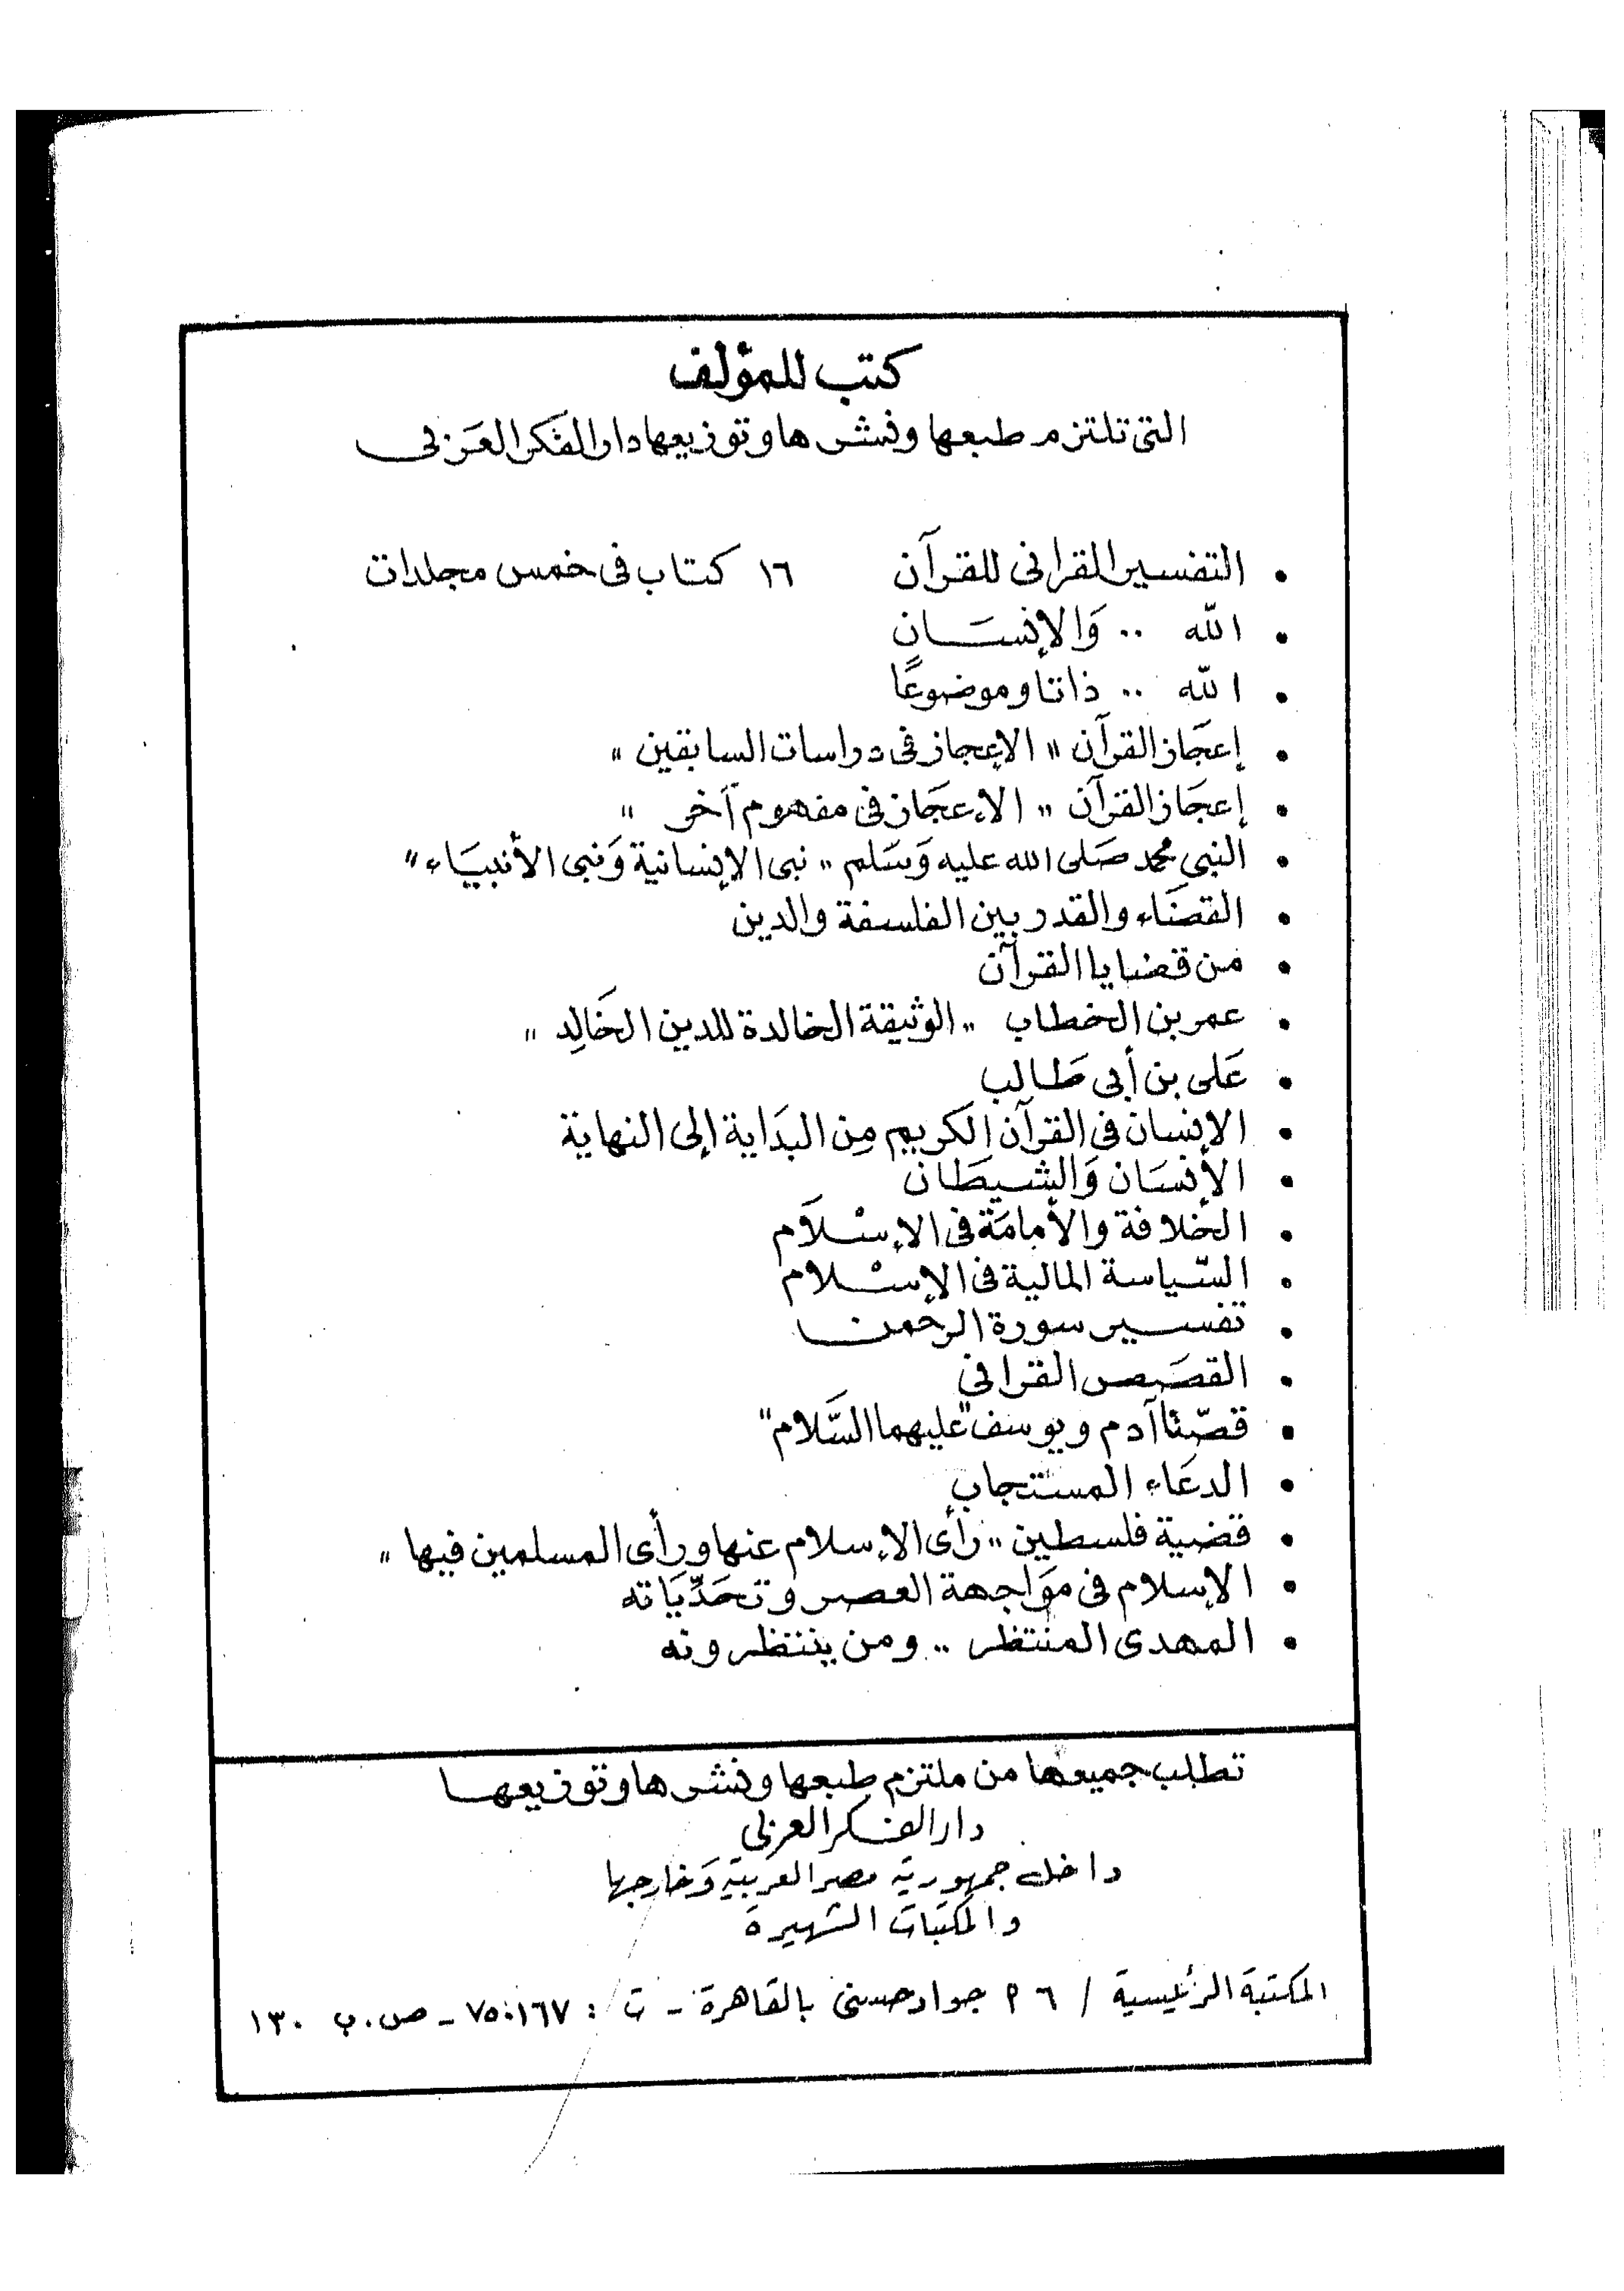 كتب للمؤلف
التى تلتزم طبعها ونشرها وتوزيعها دار الفكر العربى
• التفسير القرانى للقرآن ١٦ كتاب فى خمس مجلدات
• الله .. وَالإنسَان
• الله .. ذاتا وموضوعًا
• إعجَاز القرآن " الإعجاز فى دراسات السابقين "
• إعجَاز القرآن " الإعجَاز فى مفهوم آخر "
• النبى محمد صَلى الله عليه وَسَلم " نبى الإنسانية وَنبى الأنبيَاء "
• القضَاء والقدر بين الفلسفة والدين
• من قضايا القرآن
• عمر بن الخطاب " الوثيقة الخالدة للدين الخَالِد "
• عَلى بن أبى طَالب
• الإنسان فى القرآن الكَريم مِن البدَاية إلى النهاية
• الأنسَان وَالشيطَان
• الخلافة والأمامَة فى الإسْلَام
• السّياسة المالية فى الإسْلام
• تفسير سورة الرحمن
• القصَص القرانى
• قصّتا آدم ويوسف "عليهما السَّلام"
• الدعَاء المستجاب
• قضية فلسطين " رَأى الإسلام عنها ورأى المسلمين فيها "
• الإسلام فى موَاجهة العصر وتحَدِّيَاته
• المهدى المنتظر .. ومن ينتظرونه
تطلب جميعها من ملتزم طبعها ونشرها وتوزيعها
دار الفكر العربى
داخل جمهورية مصر العربية وَخارجها
والمكتبات الشهيرة
المكتبة الرئيسية / ٦ ٩ جواد حسنى بالقاهرة - ت : ٧٥٠١٦٧ - ص.ب ١٣٠